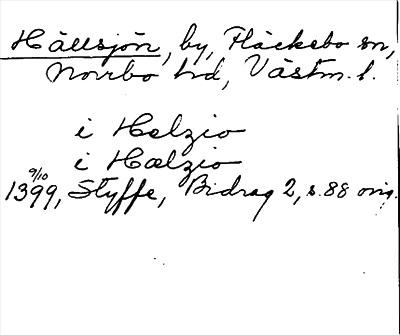 Hällsjön, by, Fläckebo sn,
Norrbo hd, Västm. l.
i Helzio
i Hælzio
9/10
1399, Styffe, Bidrag 2, s. 88 orig.